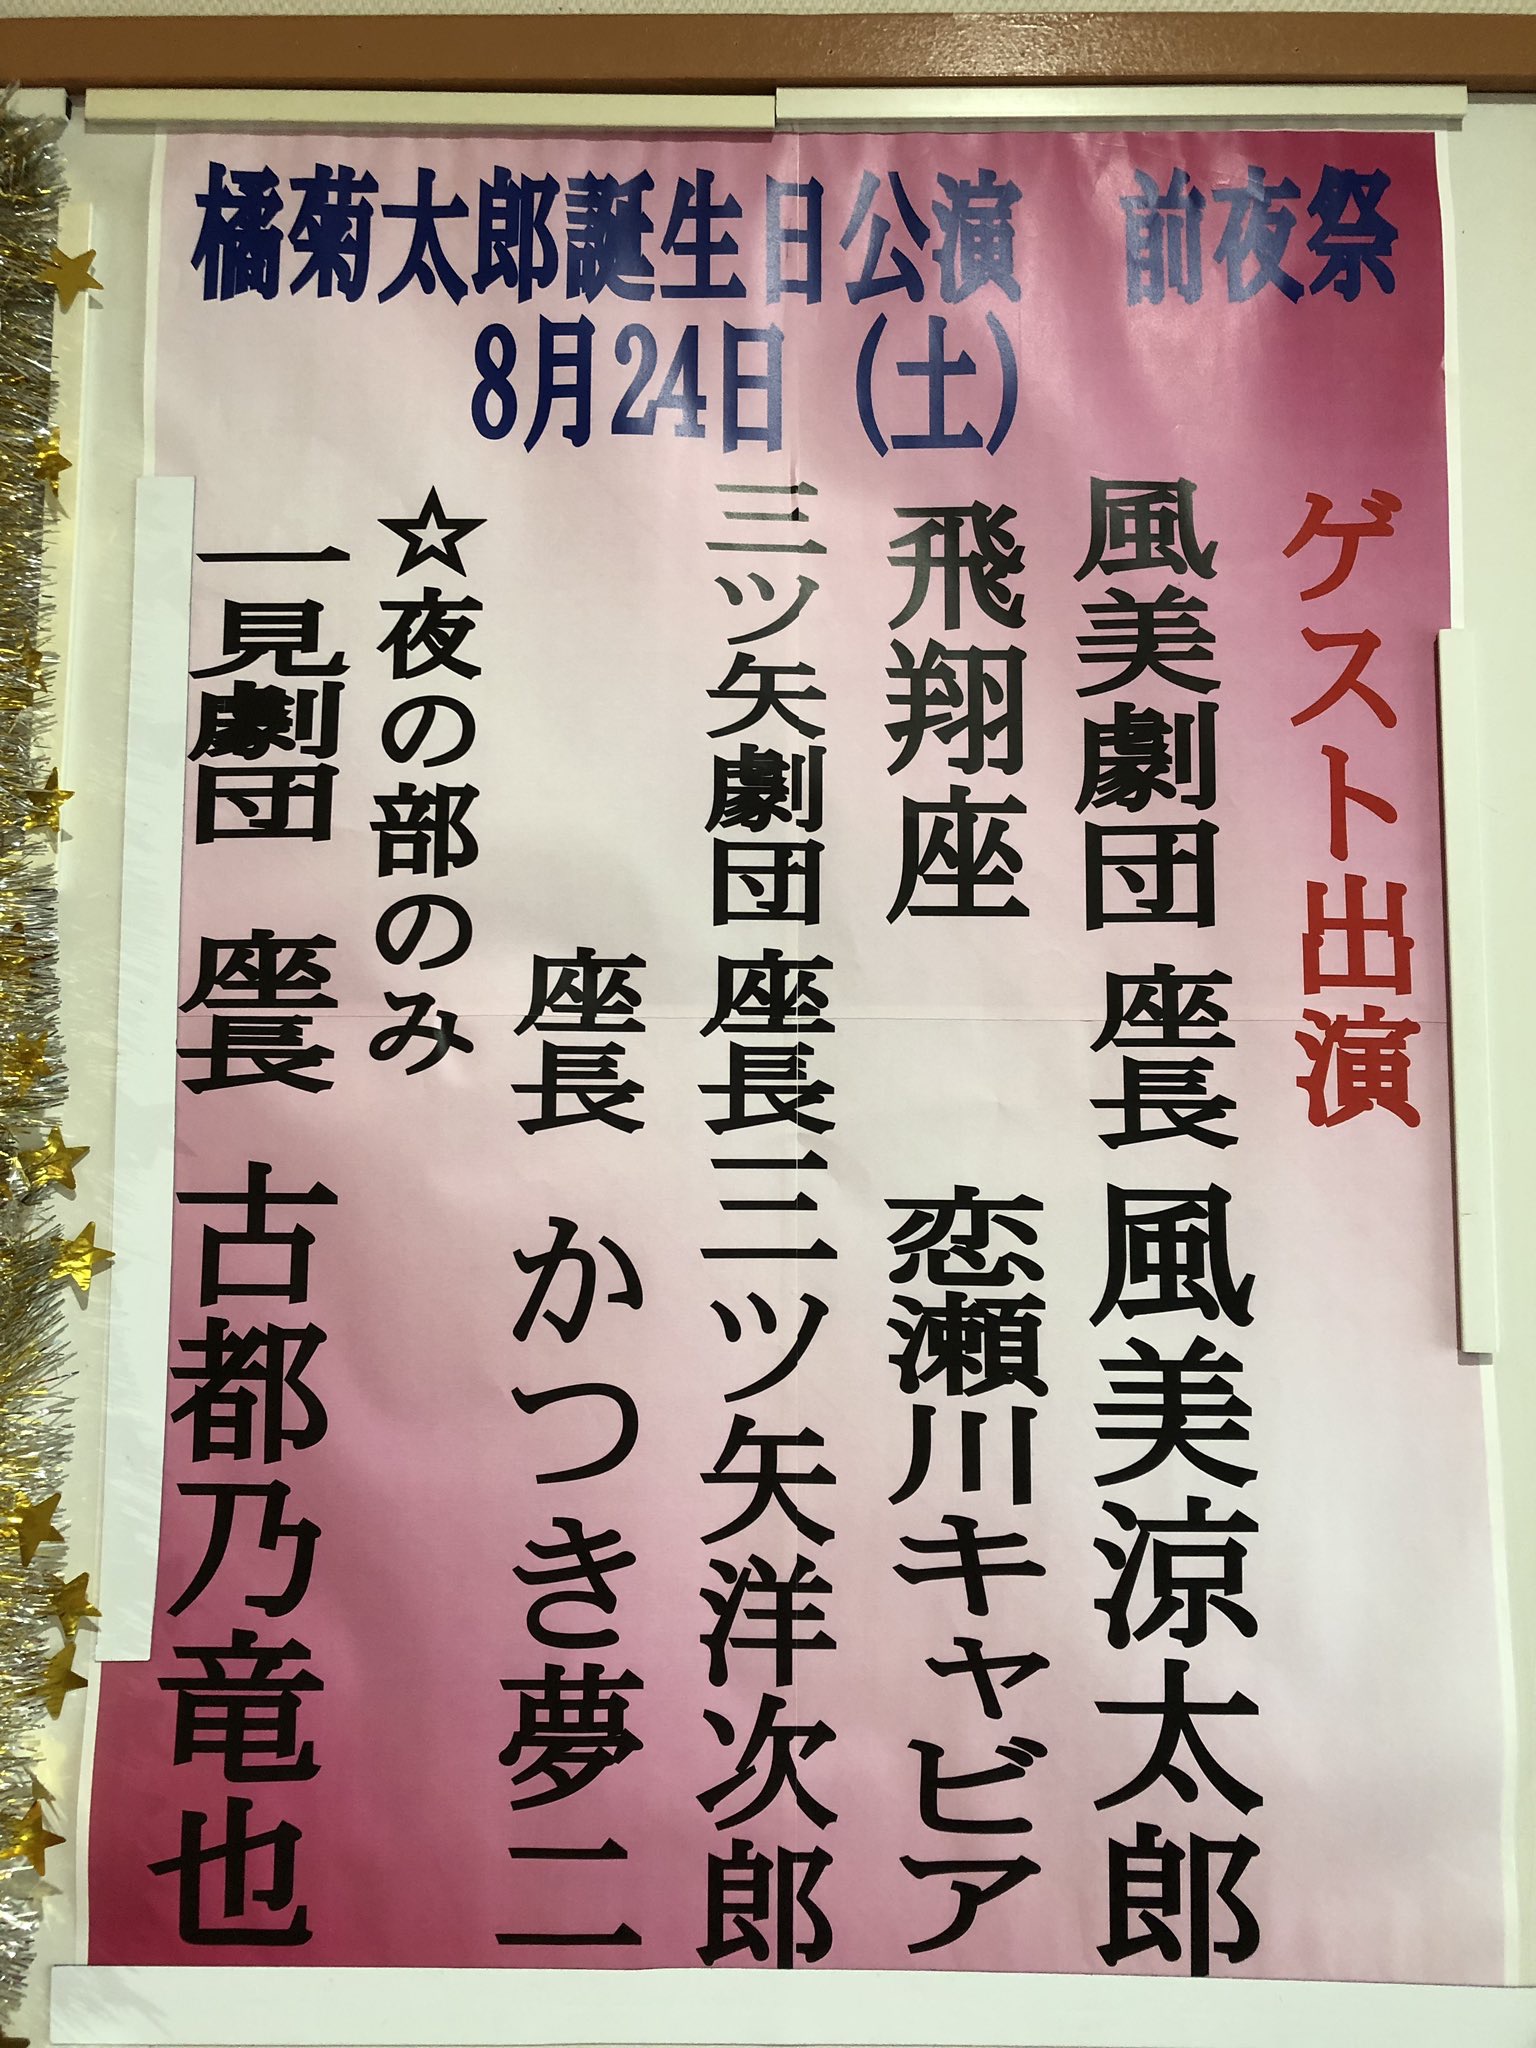 橘菊太郎誕生日公演　前夜祭
8月24日（土）
ゲスト出演
風美劇団 座長 風美涼太郎
飛翔座　恋瀬川キャビア
三ツ矢劇団 座長 三ツ矢洋次郎
座長 かつき夢二
☆夜の部のみ
一見劇団 座長 古都乃竜也